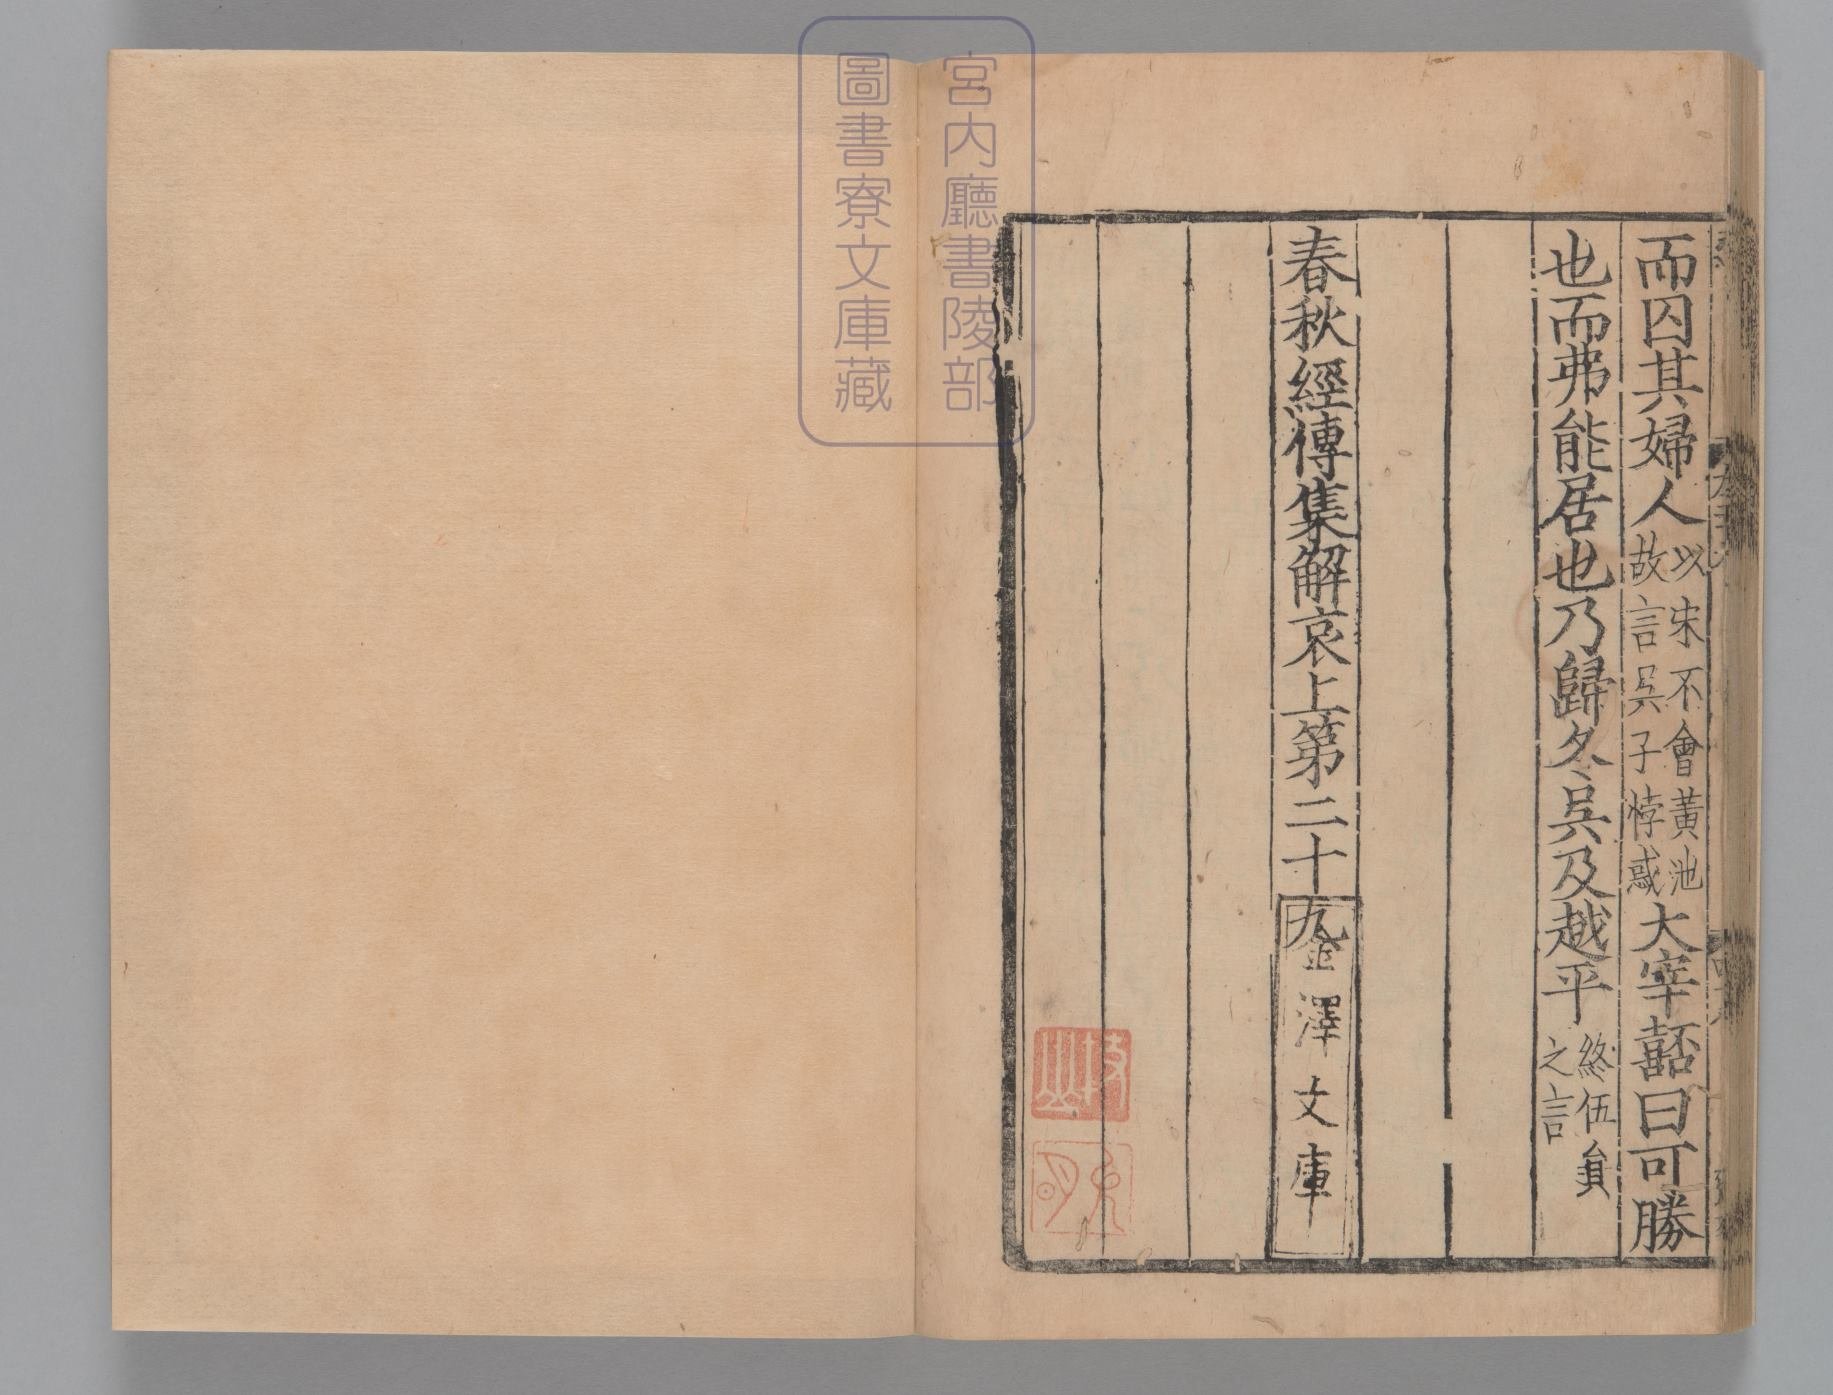 而囚其婦人以宋不會黃池故言吳子悖惑大宰嚭曰可勝
也而弗能居也乃歸冬吳及越平終伍員之言
春秋經傳集解哀上第二十九
金澤文庫
宮内廳書陵部
圖書寮文庫藏